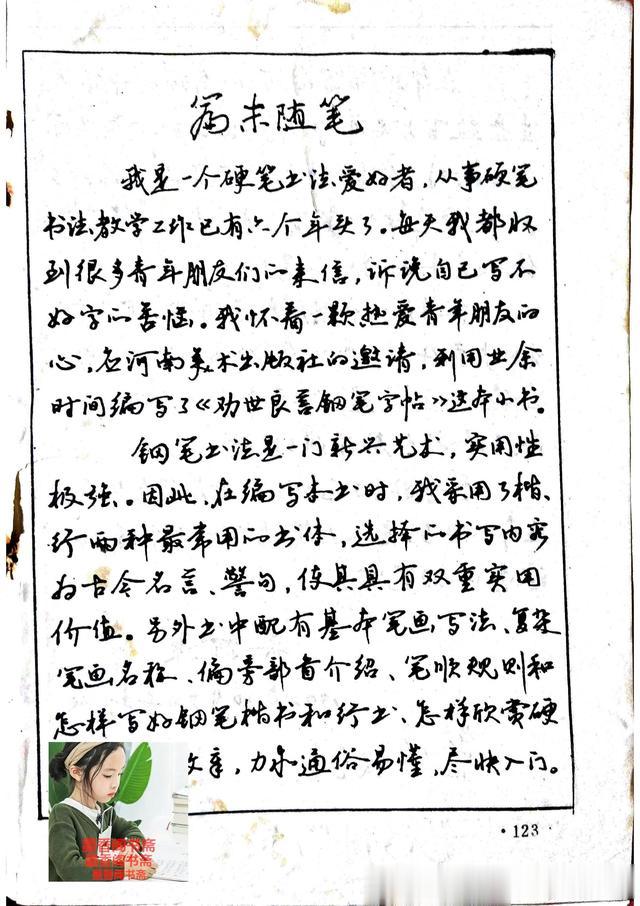 篇末随笔
我是一个硬笔书法爱好者，从事硬笔
书法教学工作已有六个年头了。每天我都收
到很多青年朋友们的来信，诉说自己写不
好字的苦恼。我怀着一颗热爱青年朋友的
心，应河南美术出版社的邀请，利用业余
时间编写了《劝世良言钢笔字帖》这本小书。
钢笔书法是一门新兴艺术，实用性
极强。因此，在编写本书时，我采用了楷、
行两种最常用的书体，选择的书写内容
为古今名言、警句，使其具有双重实用
价值。另外书中配有基本笔画写法、复杂
笔画名称、偏旁部首介绍、笔顺规则和
怎样写好钢笔楷书和行书、怎样欣赏硬
文章，力求通俗易懂，尽快入门。
墨香阁书斋
墨香阁书斋
墨香阁书斋
·123·